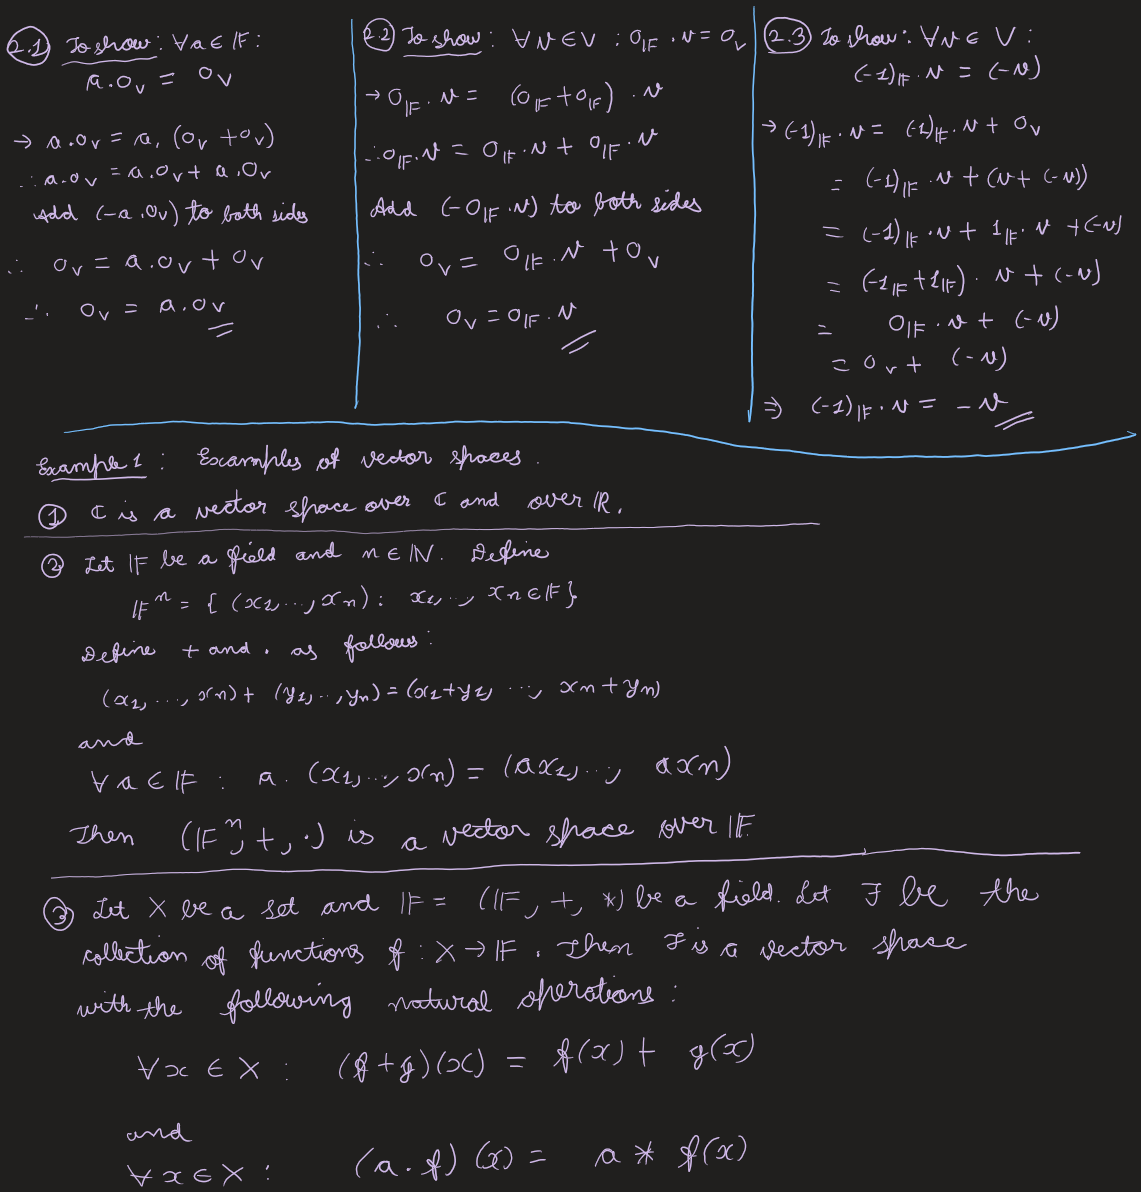 2.1 To show: ∀a ∈ 𝔽:
a.0_V = 0_V
→ a.0_V = a.(0_V + 0_V)
∴ a.0_V = a.0_V + a.0_V
Add (-a.0_V) to both sides
∴ 0_V = a.0_V + 0_V
∴ 0_V = a.0_V
2.2 To show: ∀v ∈ V : 0_𝔽 . v = 0_V
→ 0_𝔽 . v = (0_𝔽 + 0_𝔽) . v
∴ 0_𝔽 . v = 0_𝔽 . v + 0_𝔽 . v
Add (-0_𝔽 . v) to both sides
∴ 0_V = 0_𝔽 . v + 0_V
∴ 0_V = 0_𝔽 . v
2.3 To show: ∀v ∈ V :
(-1)_𝔽 . v = (-v)
→ (-1)_𝔽 . v = (-1)_𝔽 . v + 0_V
= (-1)_𝔽 . v + (v + (-v))
= (-1)_𝔽 . v + 1_𝔽 . v + (-v)
= (-1_𝔽 + 1_𝔽) . v + (-v)
= 0_𝔽 . v + (-v)
= 0_V + (-v)
⇒ (-1)_𝔽 . v = -v
Example 1 : Examples of vector spaces.
① ℂ is a vector space over ℂ and over ℝ.
② Let 𝔽 be a field and n ∈ ℕ. Define
𝔽^n = { (x_1, ..., x_n) : x_1, .., x_n ∈ 𝔽 }
Define + and . as follows :
(x_1, ..., x_n) + (y_1, .., y_n) = (x_1 + y_1, ..., x_n + y_n)
and
∀ a ∈ 𝔽 : a . (x_1, .., x_n) = (ax_1, .., ax_n)
Then (𝔽^n, +, .) is a vector space over 𝔽.
③ Let X be a set and 𝔽 = (𝔽, +, *) be a field. Let ℱ be the
collection of functions f : X → 𝔽. Then ℱ is a vector space
with the following natural operations :
∀x ∈ X : (f + g)(x) = f(x) + g(x)
and
∀x ∈ X : (a . f)(x) = a * f(x)